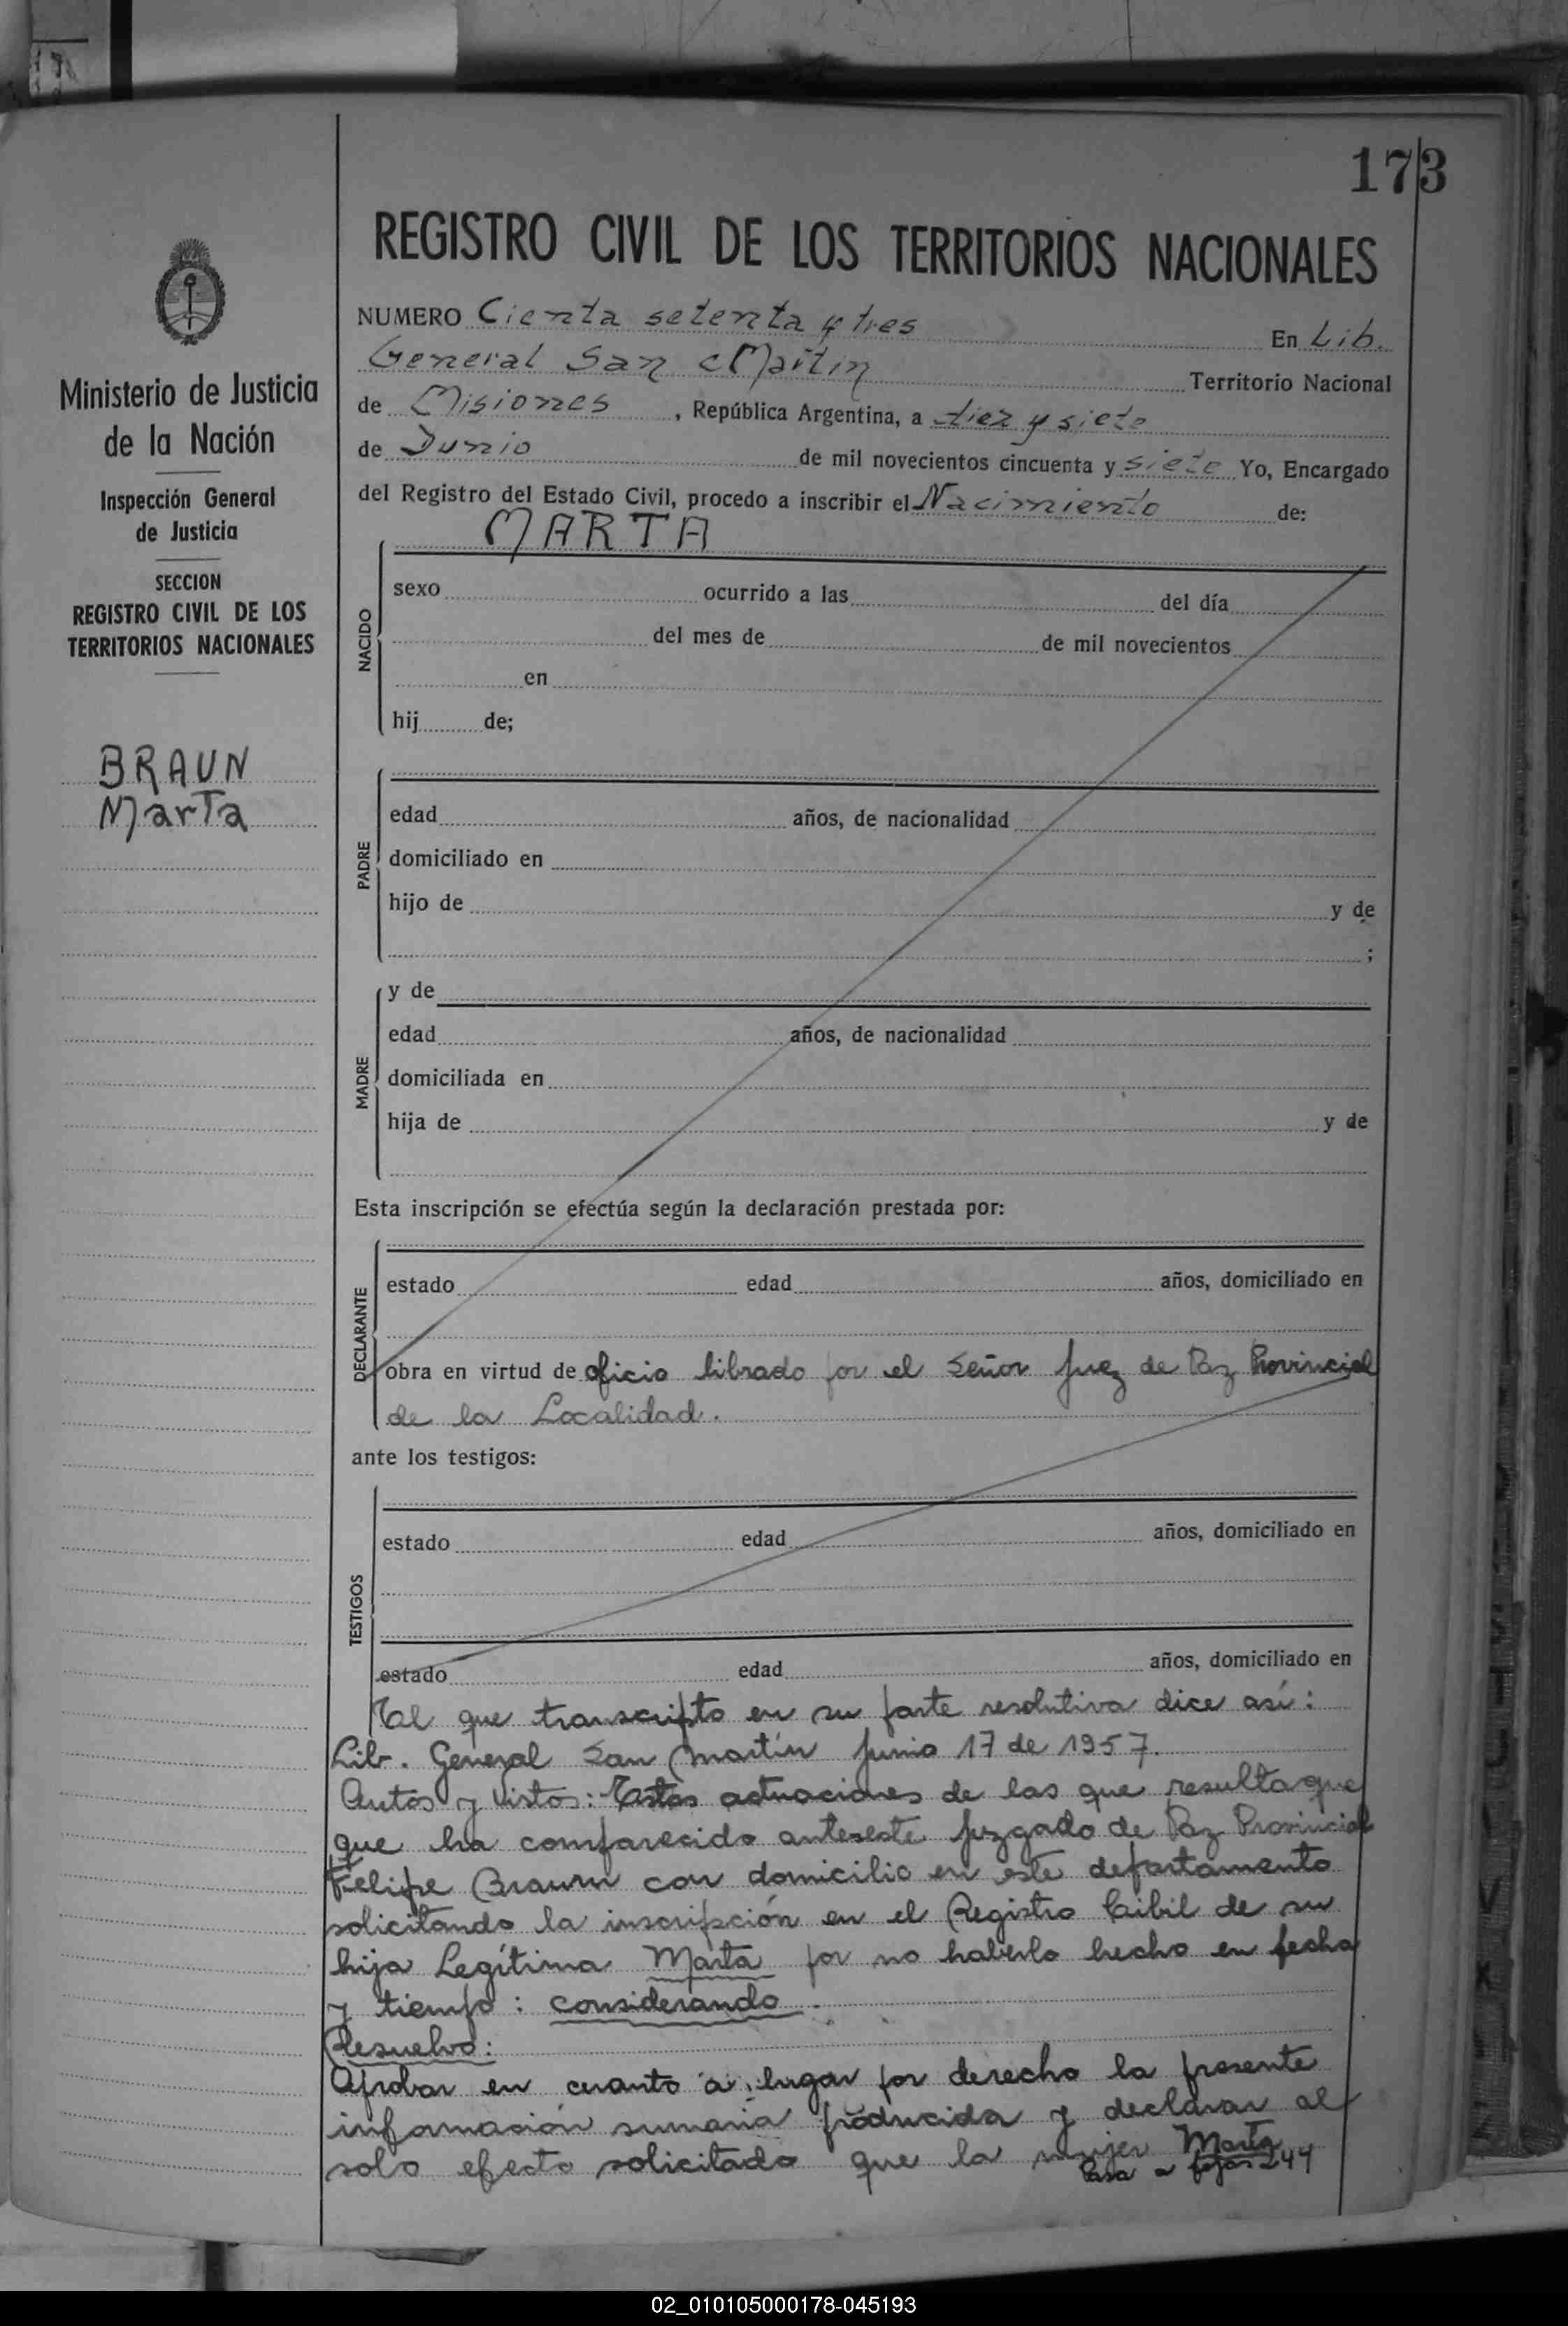 173
REGISTRO CIVIL DE LOS TERRITORIOS NACIONALES
NUMERO Ciento setenta y tres En Lib.
General San Martin Territorio Nacional
de Misiones, República Argentina, a diez y siete
de Junio de mil novecientos cincuenta y siete Yo, Encargado
del Registro del Estado Civil, procedo a inscribir el Nacimiento de:
MARTA
Ministerio de Justicia
de la Nación
Inspección General
de Justicia
SECCION
REGISTRO CIVIL DE LOS
TERRITORIOS NACIONALES
BRAUN
Marta
NACIDO
sexo ocurrido a las del día
del mes de de mil novecientos
en
hij de;
PADRE
edad años, de nacionalidad
domiciliado en
hijo de y de
;
MADRE
y de
edad años, de nacionalidad
domiciliada en
hija de y de
Esta inscripción se efectúa según la declaración prestada por:
DECLARANTE
estado edad años, domiciliado en
obra en virtud de oficio librado por el Señor Juez de Paz Provincial
de la Localidad.
ante los testigos:
TESTIGOS
estado edad años, domiciliado en
estado edad años, domiciliado en
El que transcripto en su parte resolutiva dice así:
Lib. General San Martín Junio 17 de 1957.
Autos y Vistos: Estas actuaciones de las que resulta que
que ha comparecido ante este Juzgado de Paz Provincial
Felipe Braun con domicilio en este departamento
solicitando la inscripción en el Registro Cibil de su
hija Legítima Marta por no haberlo hecho en fecha
y tiempo: considerando.
Resuelvo:
Aprobar en cuanto a lugar por derecho la presente
información sumaria producida y declarar al
solo efecto solicitado que la mujer Marta
Pasa a fojas 244
02_010105000178-045193